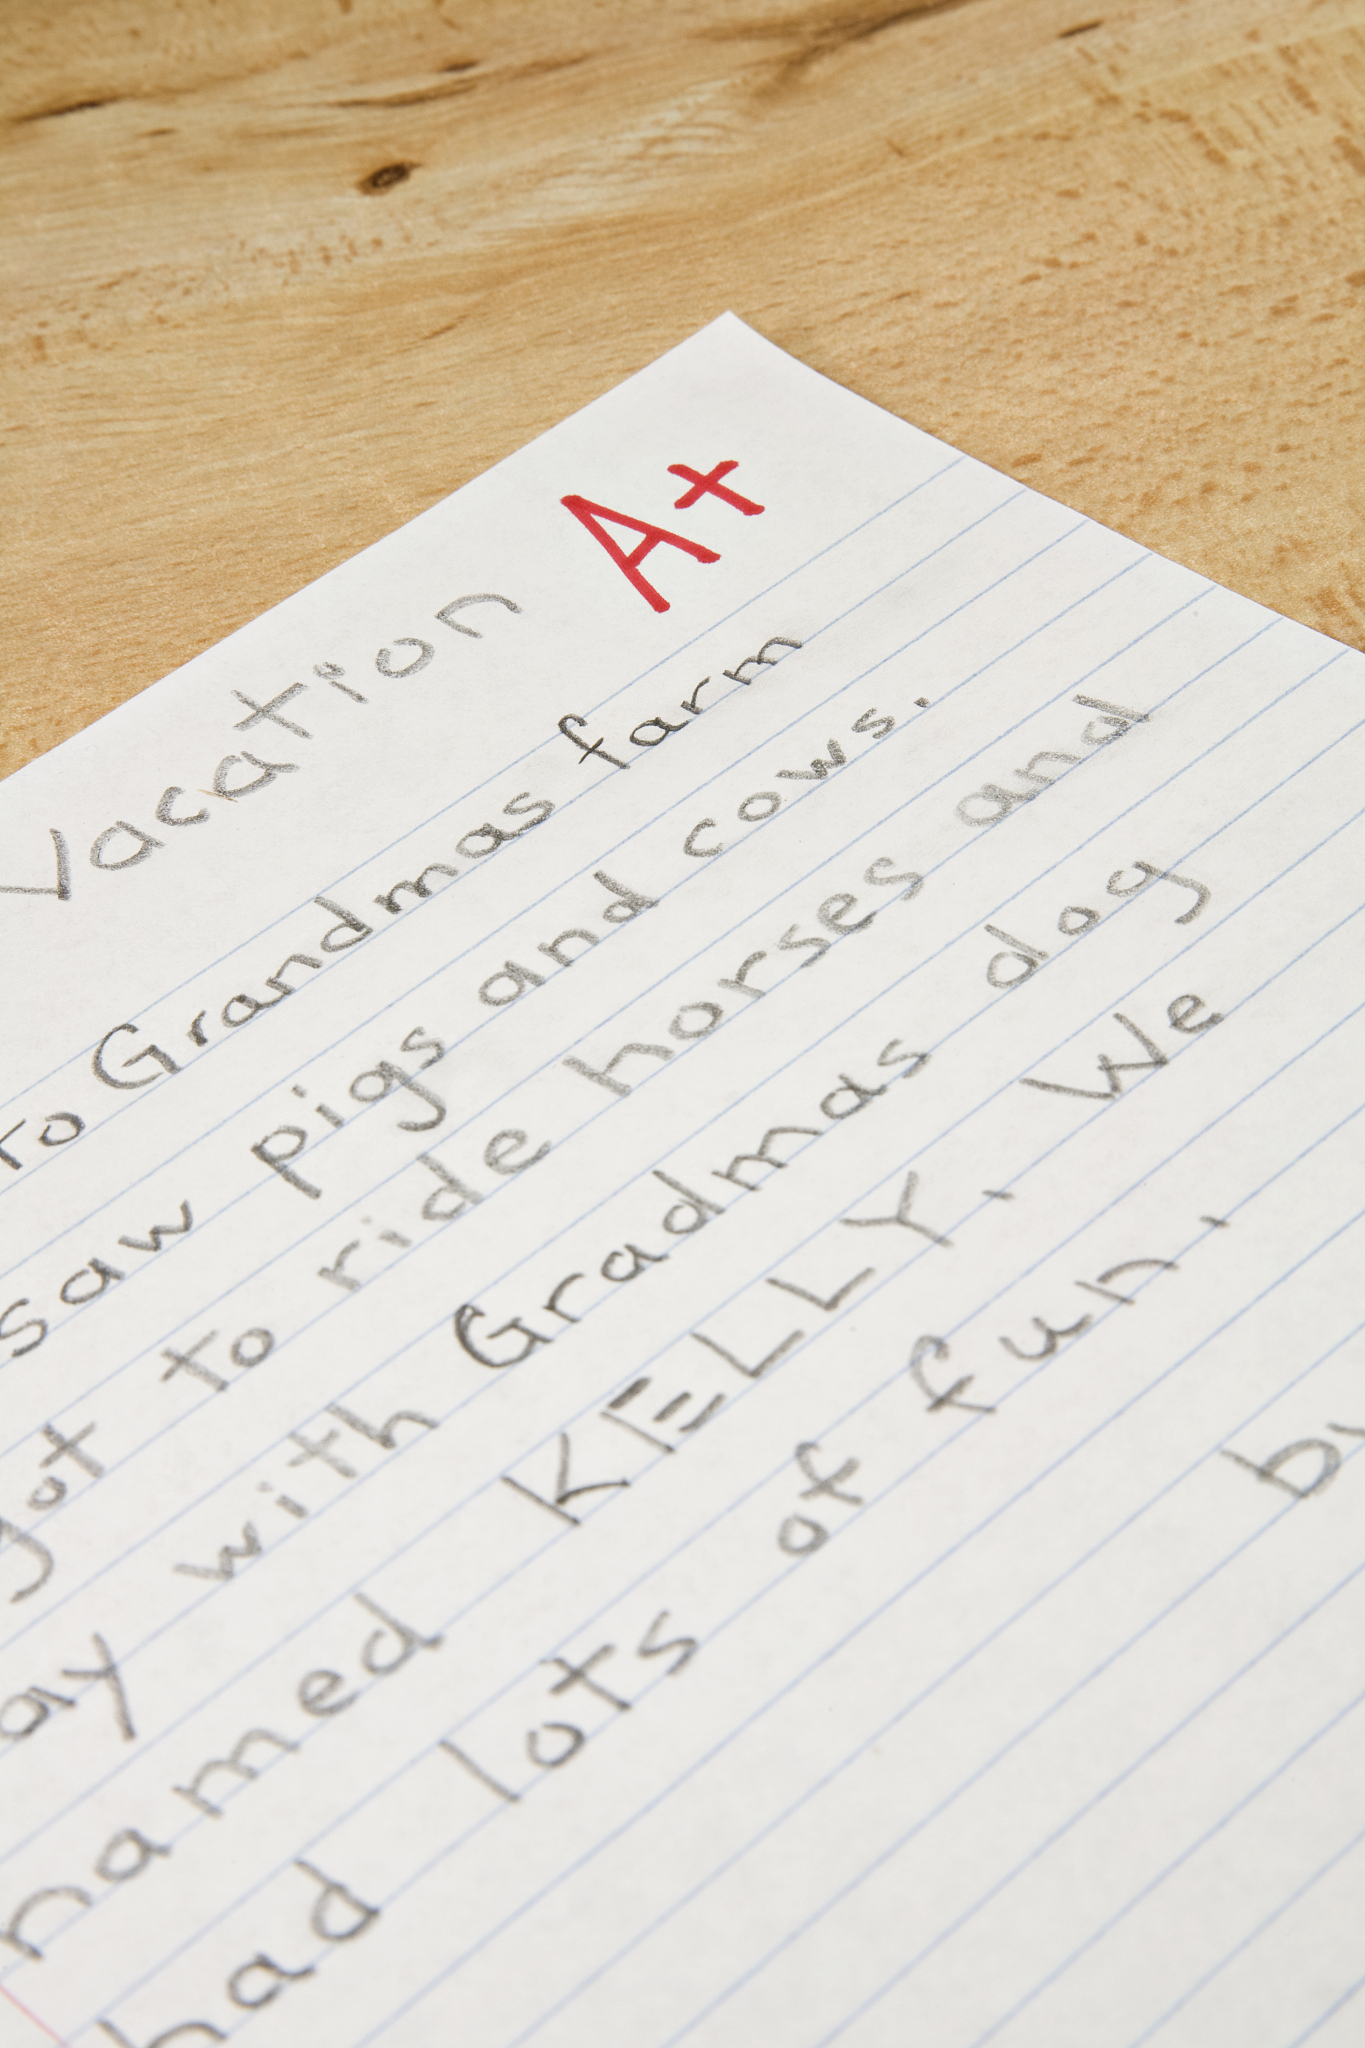 Vacation A+
to Grandmas farm
saw pigs and cows.
got to ride horses and
ay with Gradmas dog
named KELLY. We
had lots of fun.